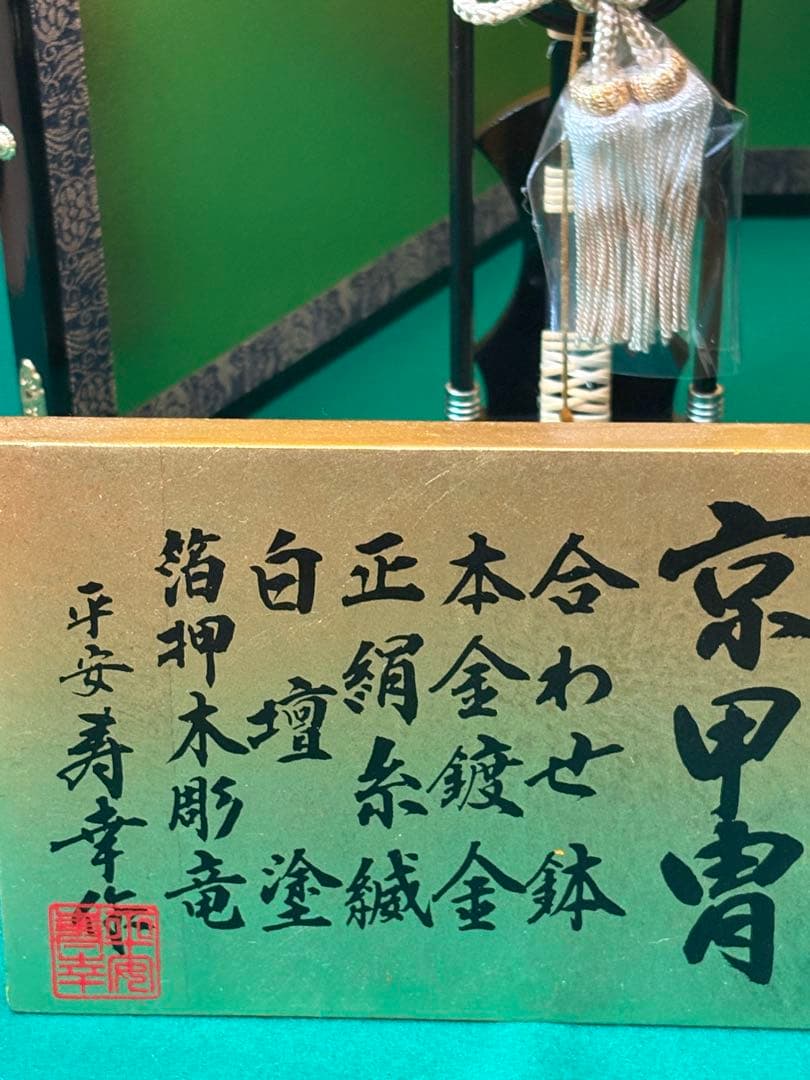 京甲冑
合わせ鉢
本金鍍金
正絹糸縅
白壇塗
箔押木彫竜
平安寿幸作
平安寿幸